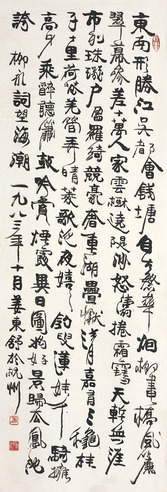 東南形勝江吳都會錢塘自古繁華烟柳畫橋風簾
翠幕參差十萬人家雲樹遶堤沙怒濤捲霜雪天塹無涯
市列珠璣戶盈羅綺競豪奢重湖疊巘清嘉有三秋桂
子十里荷花羌管弄晴菱歌泛夜嬉嬉釣叟蓮娃千騎擁
高牙乘醉聽簫鼓吟賞煙霞異日圖將好景歸去鳳池
誇 柳永詞望海潮 一九八三年十月姜東舒於杭州